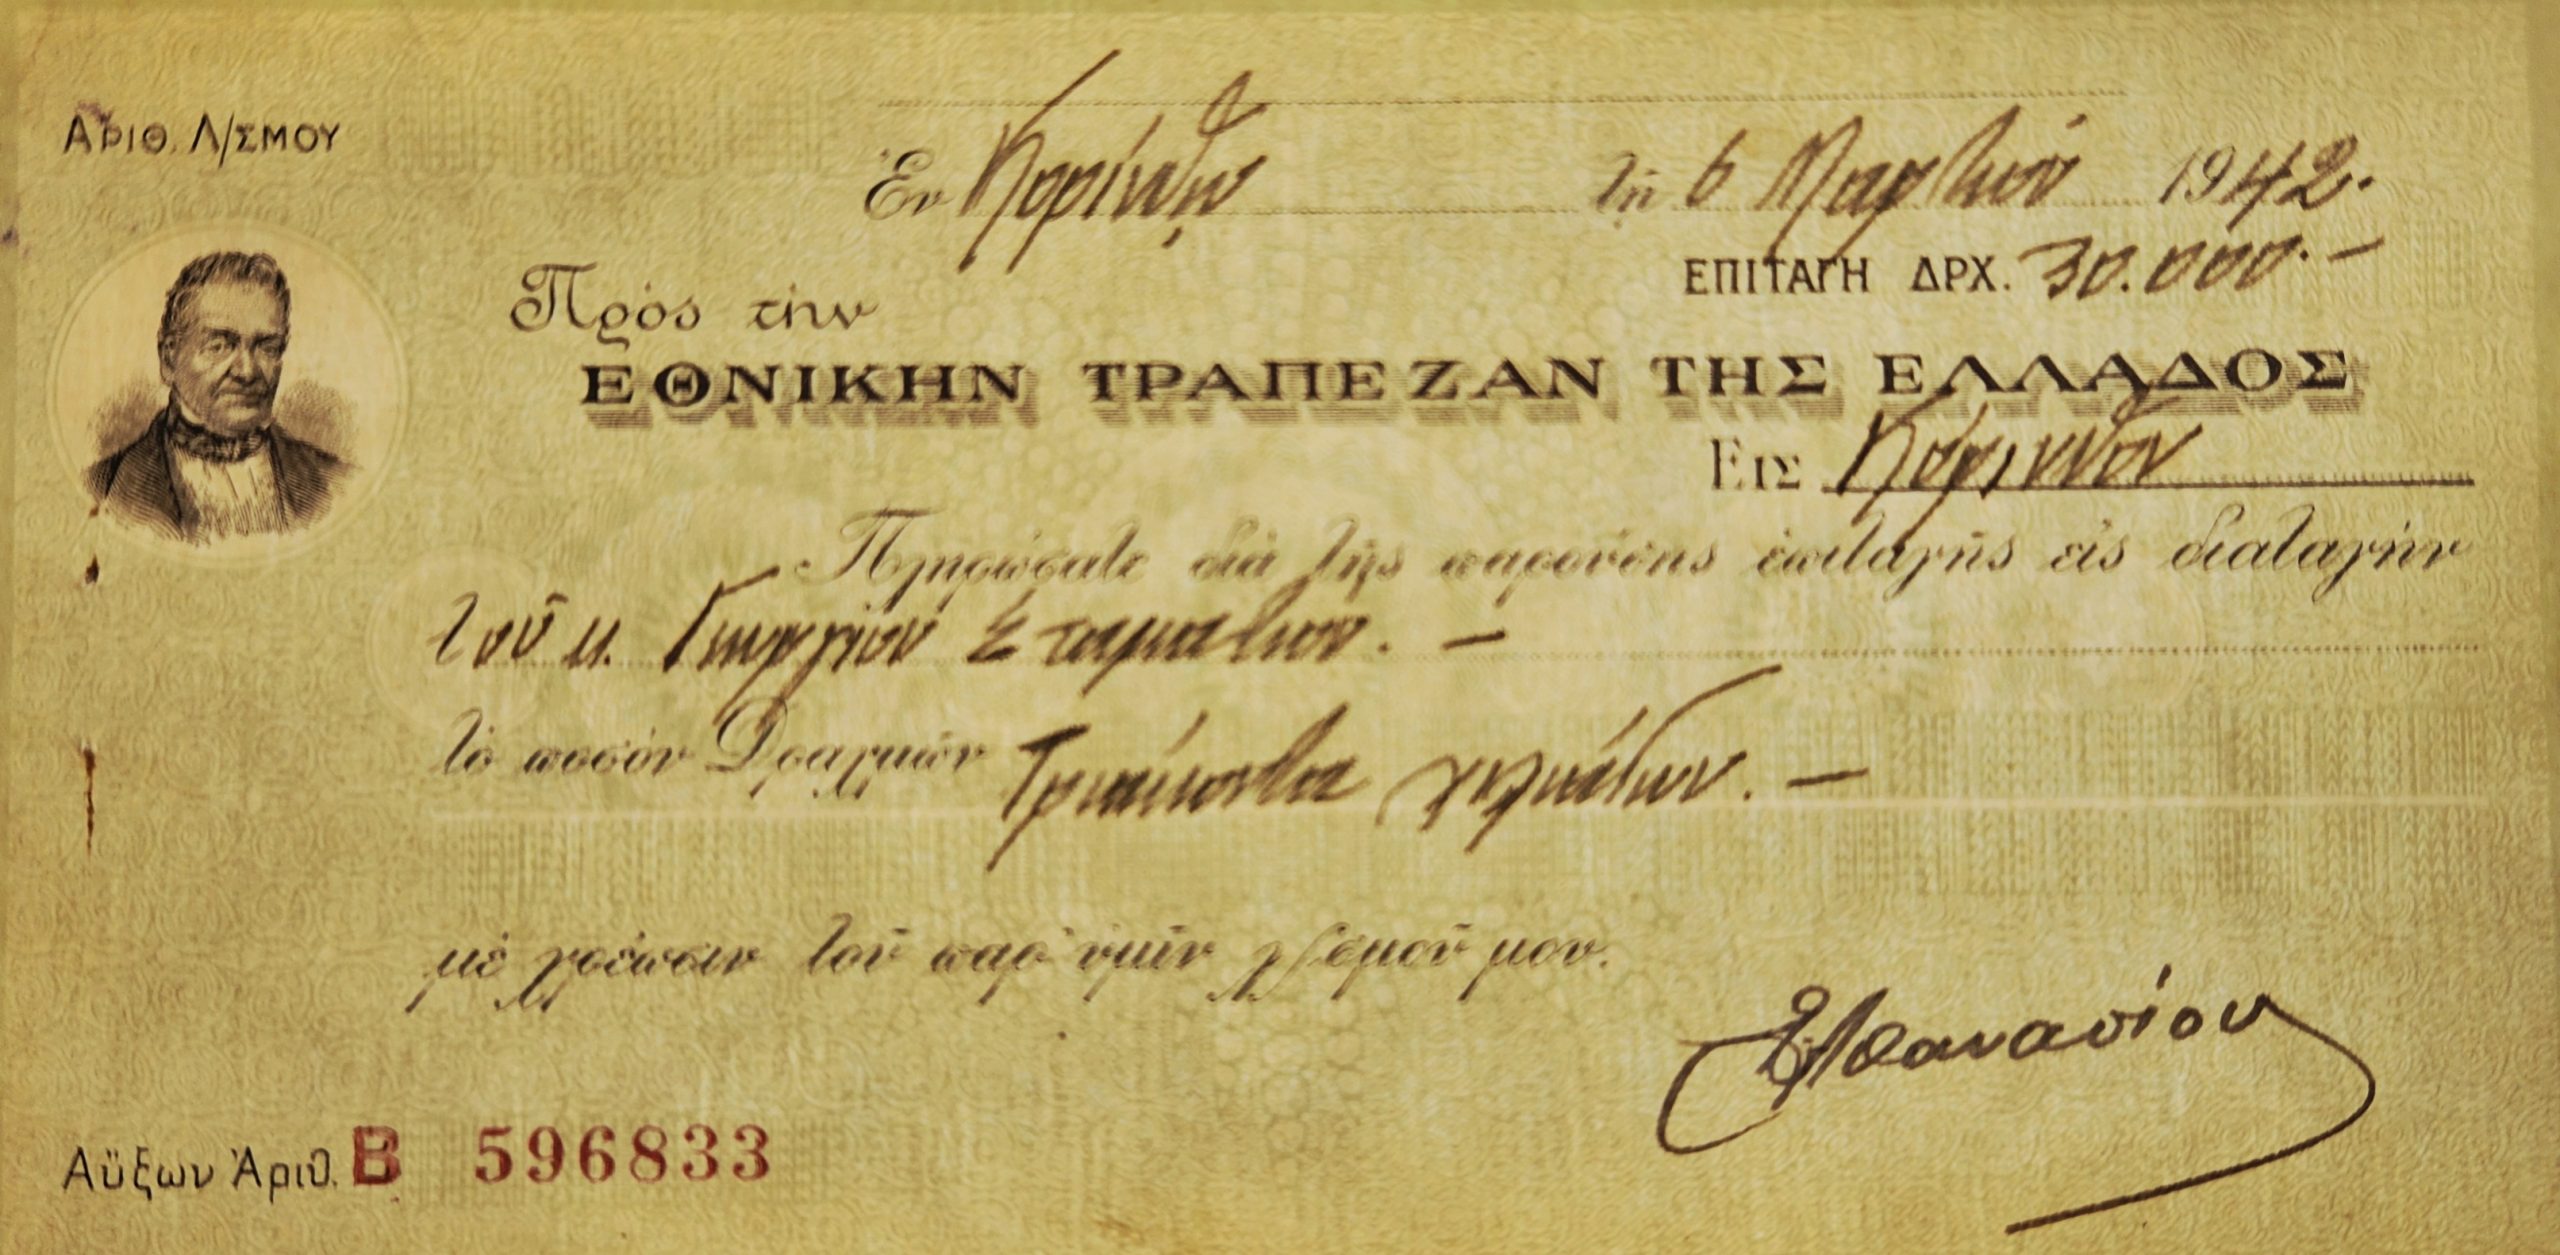 ΑΡΙΘ. Λ/ΣΜΟΥ
Ἐν Κορίνθῳ τῇ 6 Μαρτίου 1942.
ΕΠΙΤΑΓΗ ΔΡΧ. 30.000.-
Πρὸς τὴν
ΕΘΝΙΚΗΝ ΤΡΑΠΕΖΑΝ ΤΗΣ ΕΛΛΑΔΟΣ
ΕΙΣ Κόρινθον
Πληρώσατε διὰ τῆς παρούσης ἐπιταγῆς εἰς διαταγὴν
τοῦ κ. Γεωργίου Σταματίου. -
τὸ ποσὸν Δραχμῶν Τριάκοντα χιλιάδων. -
μὲ χρέωσιν τοῦ παρ' ὑμῖν λ/σμοῦ μου.
Αθανασίου
Αὔξων Ἀριθ. Β 596833